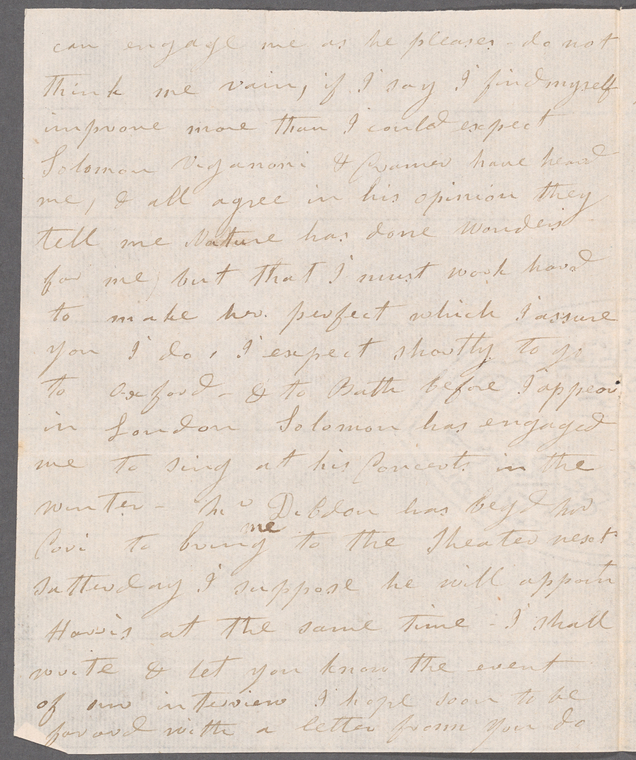 can engage me as he pleases - do not
think me vain, if I say I find myself
improve more than I could expect
Solomon Viganoni & Cramer have heard
me, & all agree in his opinion they
tell me Nature has done wonders
for me, but that I must work hard
to make her perfect which I assure
you I do, I expect shortly to go
to Oxford - & to Bath before I appear
in London Solomon has engaged
me to sing at his Concerts in the
winter - Mr Dibdon has beg'd
Cori to bring me to the Theater next
satterday I suppose he will appoin
Harris at the same time - I shall
write & let you know the event
of our interview I hope soon to be
favord with a letter from you do